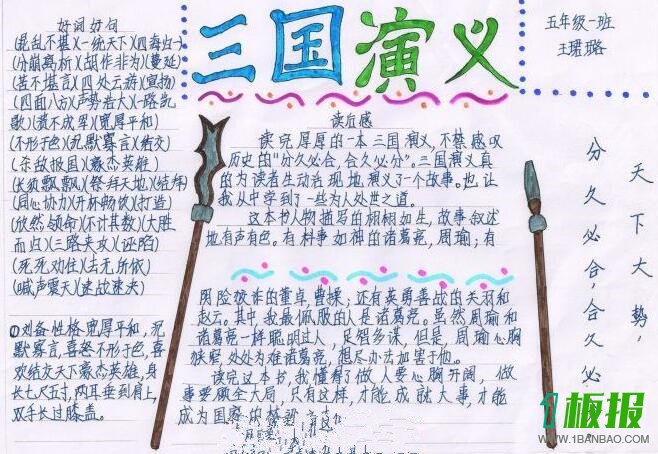 三国演义
五年级一班
王珺璐
好词好句
(混乱不堪)(一统天下)(四海归一)
(分崩离析)(胡作非为)(蔓延)
(苦不堪言)(四处云游)(宣扬)
(四面八方)(声势浩大)(一路凯
歌)(溃不成军)(宽厚平和)
(不形于色)(沉默寡言)(结交)
(杀敌报国)(豪杰英雄)
(长须飘飘)(祭拜天地)(结拜)
(同心协力)(开杯畅饮)(打造)
(欣然领命)(不计其数)(大胜
而归)(三路夹攻)(诬陷)
(死死劝住)(去无所依)
(喊声震天)(速战速决)
①刘备性格宽厚平和,沉
默寡言,喜怒不形于色,喜
欢结交天下豪杰英雄,身
长七尺五寸,两耳垂到肩上,
双手长过膝盖。
读后感
读完厚厚的一本三国演义,不禁感叹
历史的“分久必合,合久必分”。三国演义真
的为读者生动活现地演义了一个故事。也让
我从中学到了一些为人处世之道。
这本书人物描写的栩栩如生,故事叙述
地有声有色。有料事如神的诸葛亮,周瑜;有
阴险狡诈的董卓,曹操;还有英勇善战的关羽和
赵云。其中我最佩服的人是诸葛亮。虽然周瑜和
诸葛亮一样聪明过人,足智多谋,但是,周瑜心胸
狭窄处处为难诸葛亮,想尽办法加害于他。
读完这本书,我懂得了做人要心胸开阔,做
事要顾全大局,只有这样,才能成就大事,才能
成为国家的
天下大势,
分久必合,合久必
1板报
WWW.1BANBAO.COM